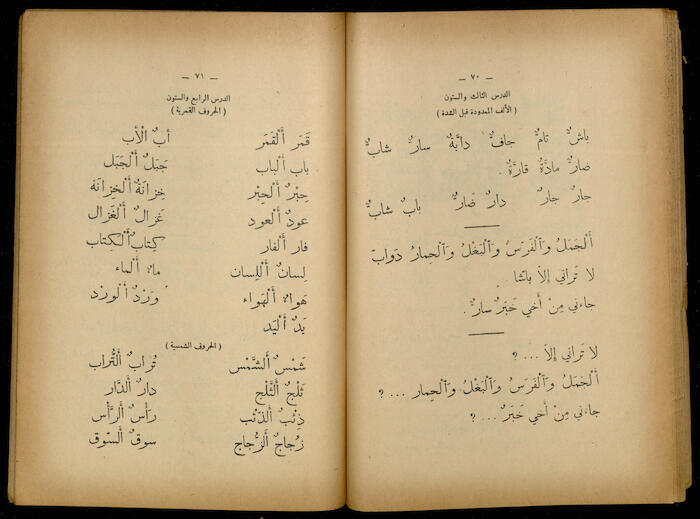 — ٧٠ —
الدرس الثالث والستون
( الألف الممدودة قبل الشدة )
باشٌّ تامٌّ جافٌّ دابَّةٌ سارٌّ شابٌّ
ضارٌّ مادَّةٌ قارَّةٌ .
جارٌ جارٌّ دارٌ ضارٌّ بابٌ شابٌّ
أَلْجَمَلُ وَٱلْفَرَسُ وَٱلْبَغْلُ وَٱلْحِمارُ دَوابّ
لا تَراني إلاّ باشّا
جاءَني مِنْ أَخي خَبَرٌ سارٌّ .
لا تَراني إلاّ ... ؟
أَلْجَمَلُ وَٱلْفَرَسُ وَٱلْبَغْلُ وَٱلْحِمار ... ؟
جاءَني مِنْ أَخي خَبَرٌ ... ؟
— ٧١ —
الدرس الرابع والستون
( الحروف القمرية )
قَمَر أَلْقَمَر أَبٌ الْأَب
باب أَلْباب جَبَلٌ أَلْجَبَل
حِبْرٌ أَلْحِبْر خِزانَةٌ أَلْخزانَة
عودٌ أَلْعود غَزالٌ أَلْغَزال
فار أَلْفار كِتابٌ أَلْكِتاب
لِسانٌ أَللِسان ماءٌ ألْماء
هَواءٌ أَلْهَواء وَرْدٌ أَلْورْد
يَدٌ أَلْيَد
( الحروف الشمسية )
شَمْسٌ أَلشَّمْس تُرابٌ أَلتُّراب
ثَلْجٌ أَلثَّلْج دارٌ أَلدَّار
ذِئْبٌ أَلذّئْب رَأْسٌ أَلرَّأْس
زُجاجٌ أَلزُّجاج سوقٌ أَلسّوق